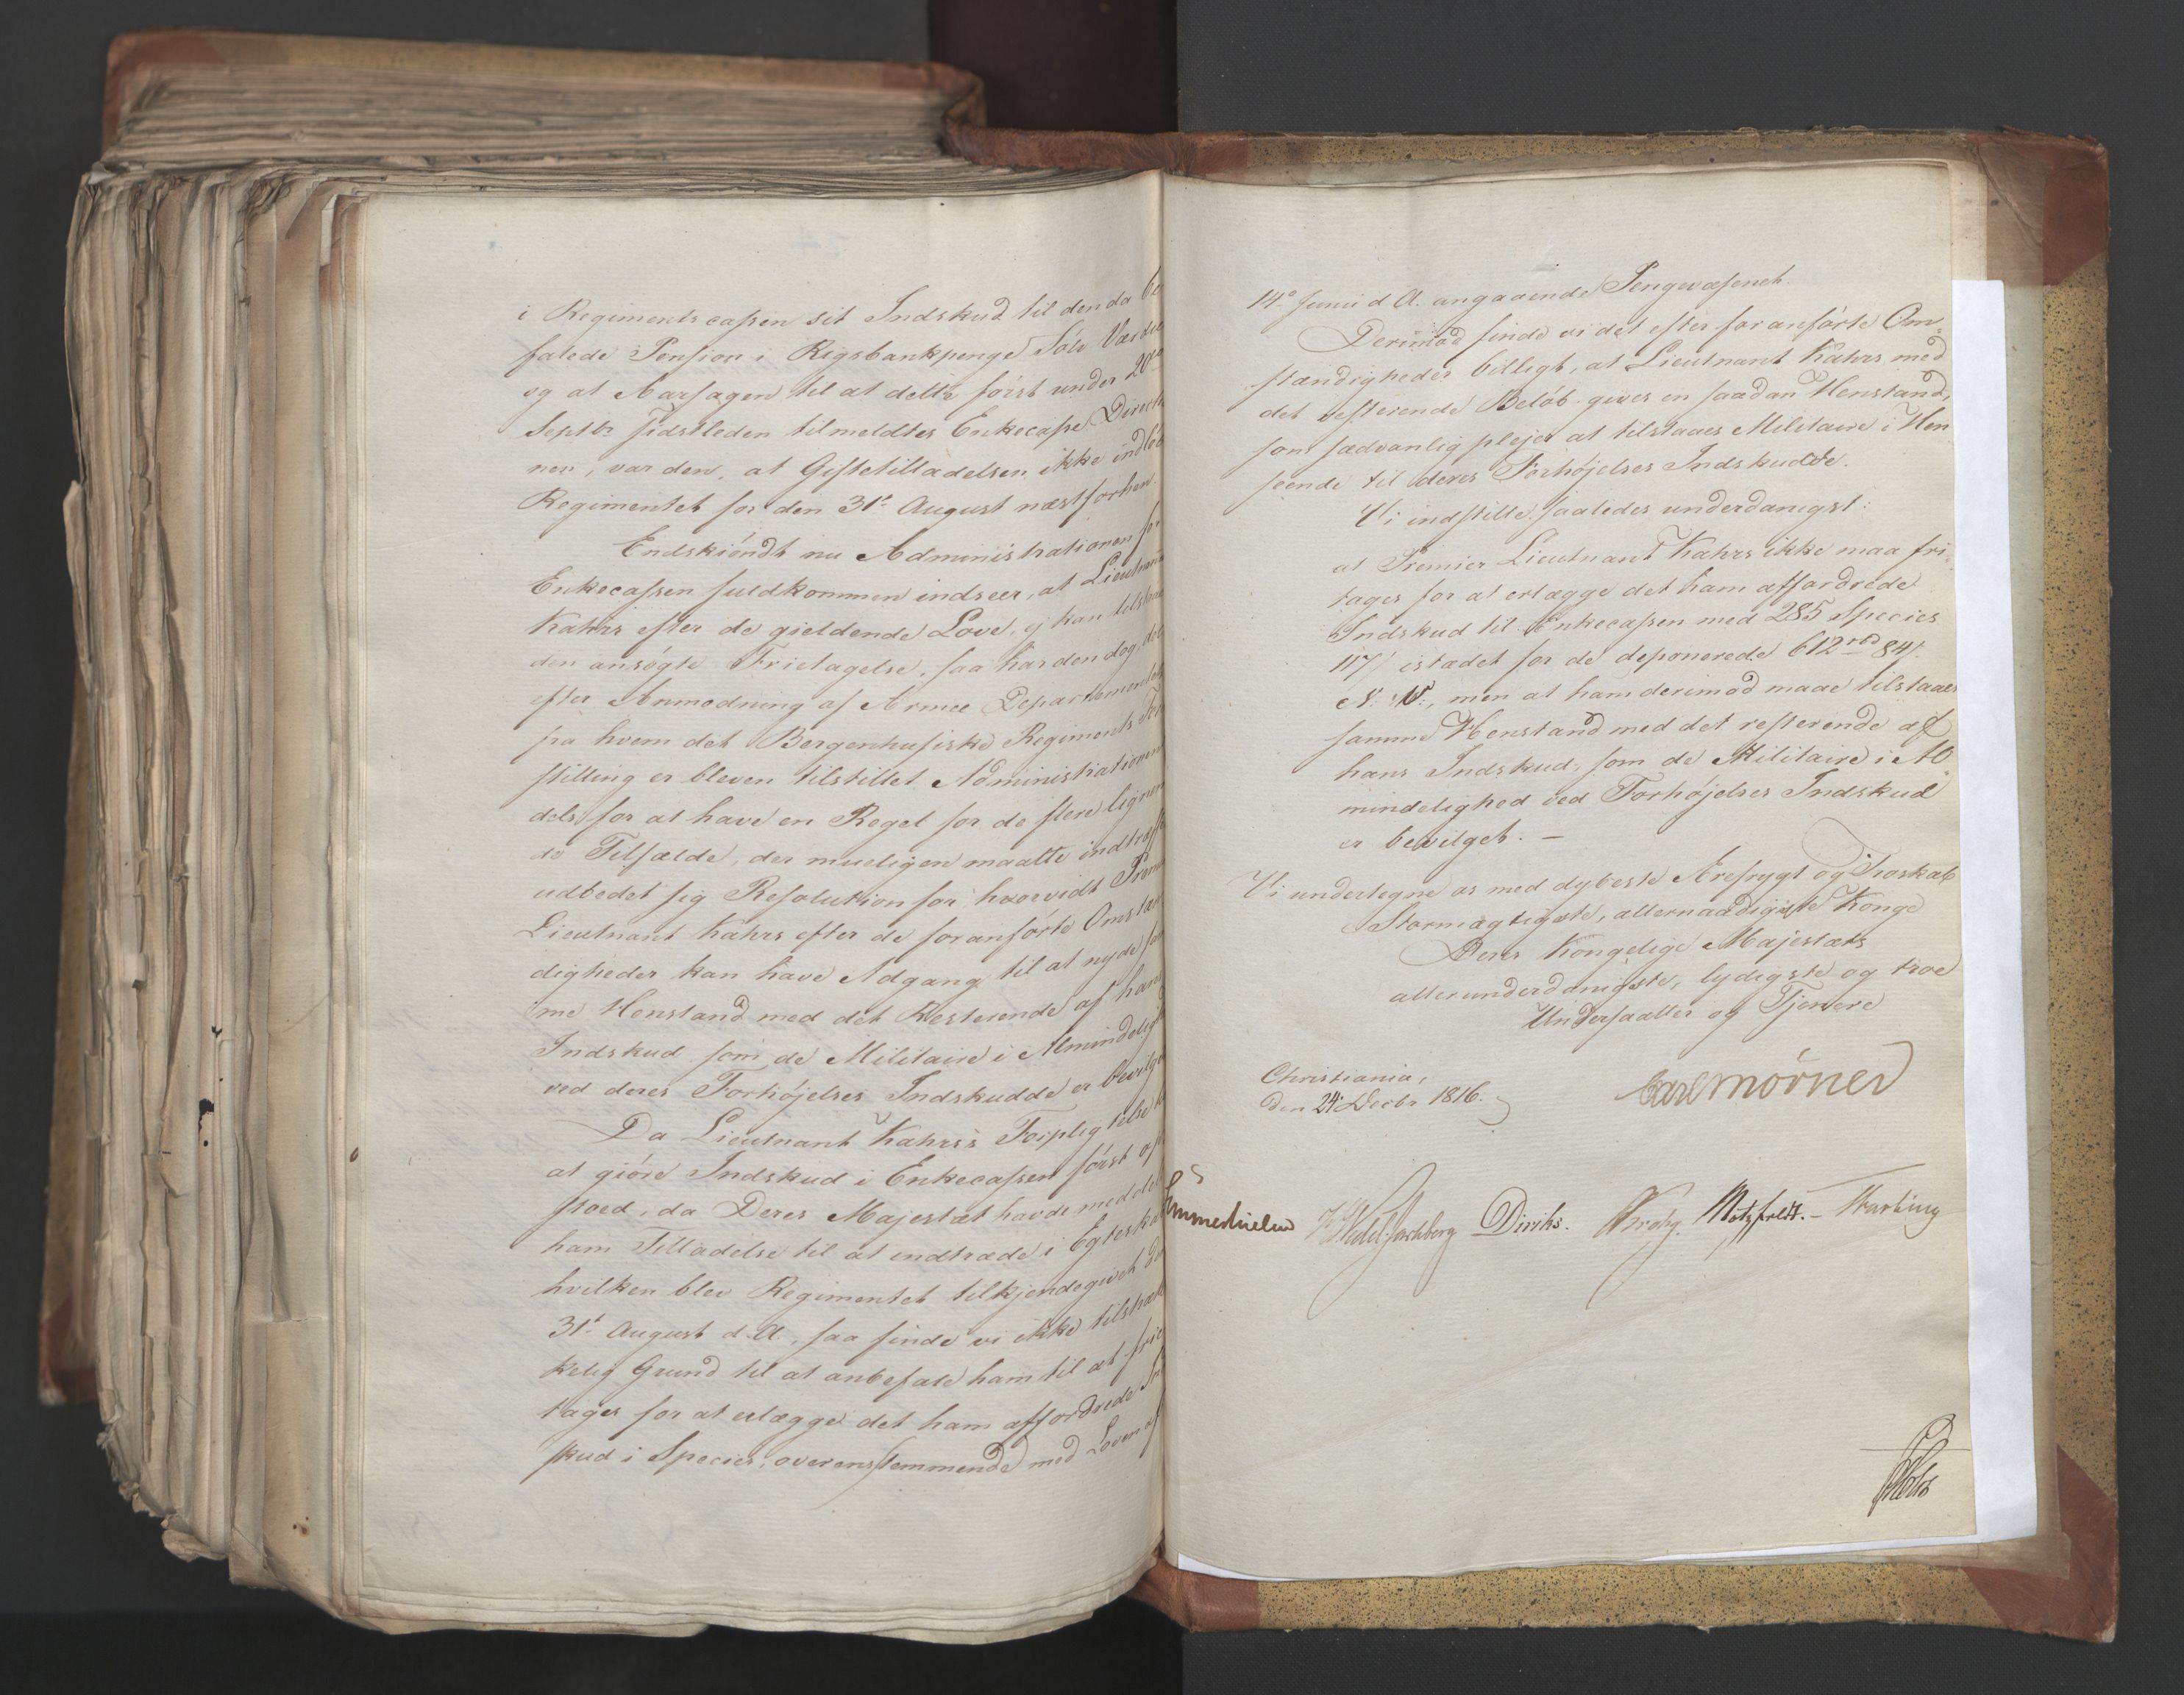 i Regimentscassen sit Indskud til den da be
falede Pension i Rigsbankpenge Sølv Værdie
og at Aarsagen til at dette først under 20de
Septbr sidstleden tilmeldtes Enkecasse Directio
nen, var den, at Giftetilladelsen ikke indløb
Regimentet før den 31t August næstforhen.
Endskiøndt nu Administrationen for
Enkecassen fuldkommen indseer, at Lieutnant
Kahrs efter de gieldende Love, ej kan tilstaaes
den ansøgte Fritagelse, saa har den dog, deels
efter Anmodning af Armee Departementet
fra hvem det Bergenhusiske Regiments Fore
stilling er bleven tilstillet Administrationen
dels for at have en Regel for de flere lignen
de Tilfælde, der mueligen maatte indtræffe
udbedet sig Resolution for: hvorvidt Premier
Lieutnant Kahrs efter de foranførte Omstæn
digheder kan have Adgang til at nyde sam
me Henstand med det Resterende af hans
Indskud som de Militaire i Almindelighed
ved deres Forhøjelses Indskudde er bevilget
Da Lieutnant Kahrs's Forpligtelse til
at giøre Indskud i Enkecassen først op
stoed, da Deres Majestæt havde meddelt
ham Tilladelse til at indtræde i Egteskab
hvilken blev Regimentet tilkjendegivet den
31t August d. A., saa finde vi ikke tilstræk
kelig Grund til at anbefale ham til at frie
tages for at erlægge det ham affordrede Ind
skud i Species, overensstemmende med Loven af
14de Junii d A. angaaende Pengevæsenet.
Derimod finde vi det efter foranførte Om-
stændigheder billigt, at Lieutnant Kahrs med
det resterende Beløb gives en saadan Henstand,
som sædvanlig plejer at tilstaaes Militaire i Hen
seende til deres Forhøjelses Indskudde.
Vi indstille saaledes underdanigst:
at Premier Lieutnant Kahrs ikke maa fri
tages for at erlægge det ham affordrede
Indskud til Enkecassen med 285 Species
117/ istædet for de deponerede 612 rbd 84/.
N: V:, men at ham derimod maae tilstaaes
samme Henstand med det resterende af
hans Indskud, som de Militaire i Al
mindelighed ved Forhøjelses Indskud
er bevilget. –
Vi undertegne os med dybeste Ærefrygt og Troskab
Stormægtigste, allernaadigste Konge
Deres Kongelige Majestæts
allerunderdanigste, lydigste og troe
Undersaatter og Tjenere
Christiania,
den 24de Decbr 1816.
Carl Mörner
Sommerhielm HWedel Jarlsberg Diriks. Krohg. Motzfeldt. – Harbing
Holst